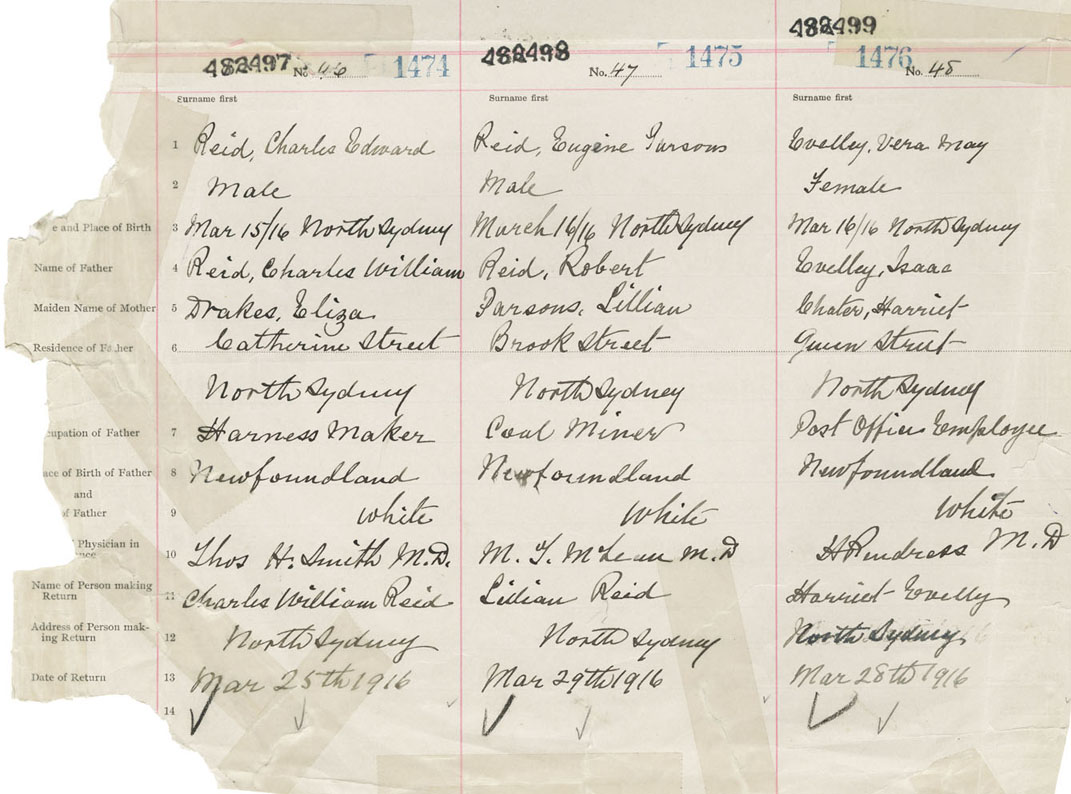 482497 482498 482499
No. 46 1474 No. 47 1475 1476 No. 48
Surname first Surname first Surname first
1 Reid, Charles Edward Reid, Eugene Parsons Evelley, Vera May
2 Male Male Female
e and Place of Birth 3 Mar 15/16 North Sydney March 16/16 North Sydney Mar 16/16 North Sydney
Name of Father 4 Reid, Charles William Reid, Robert Evelley, Isaac
Maiden Name of Mother 5 Drakes, Eliza Parsons, Lillian Chater, Harriet
Residence of Father 6 Catherine Street Brook Street Queen Street
North Sydney North Sydney North Sydney
cupation of Father 7 Harness Maker Coal Miner Post Office Employee
ace of Birth of Father 8 Newfoundland Newfoundland Newfoundland
and
of Father 9 White White White
Physician in
nce 10 Thos H. Smith M.D. M. T. McLean M.D M.D
Name of Person making
Return 11 Charles William Reid Lillian Reid Harriet Evelly
Address of Person mak-
ing Return 12 North Sydney North Sydney North Sydney
Date of Return 13 Mar 25th 1916 Mar 29th 1916 Mar 28th 1916
14